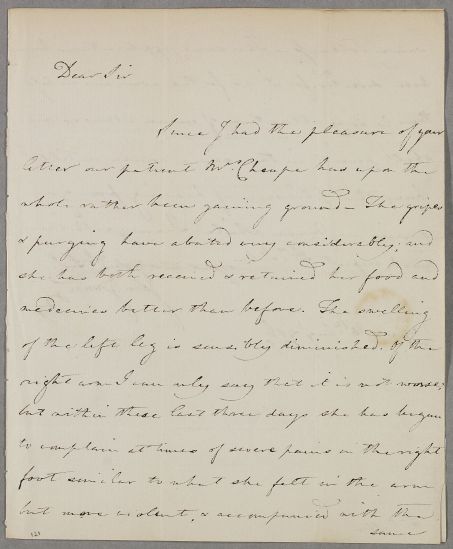 Dear Sir
Since I had the pleasure of your
letter our patient Mrs. Cheape has upon the
whole rather been gaining ground – The gripes
& purging have abated very considerably; and
she has both received & retained her food and
medecines better than before. The swelling
of the left leg is sensibly diminished. Of the
right arm I can only say that it is not worse;
but within these last three days she has begun
to complain at times of severe pains in the right
foot similar to what she felt in the arm
but more violent, & accompanied with the
same